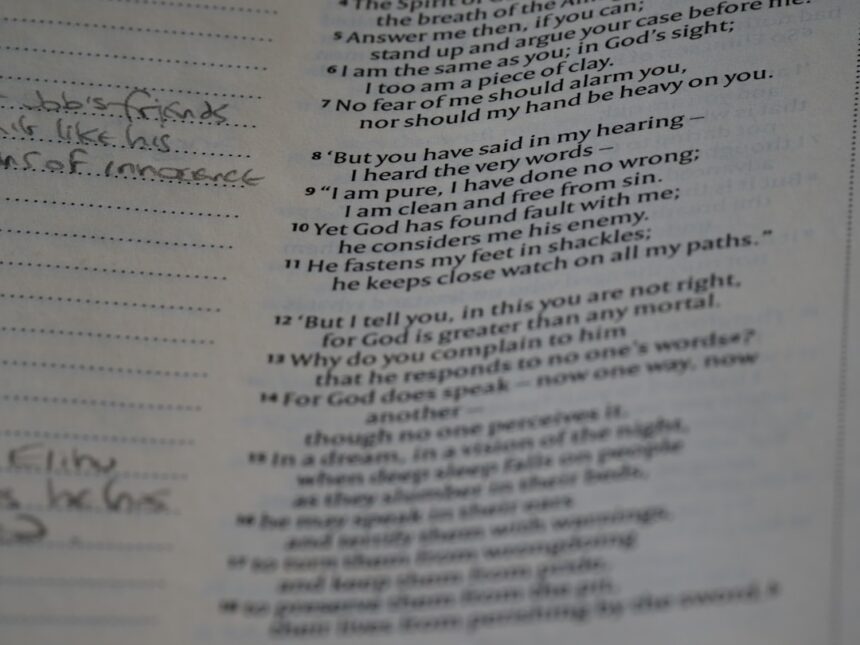 Job's friends
like his
of innocence
Elihu
he his
4 The Spirit of
the breath of the
5 Answer me then, if you can;
stand up and argue your case before me.
6 I am the same as you; in God's sight;
I too am a piece of clay.
7 No fear of me should alarm you,
nor should my hand be heavy on you.
8 ‘But you have said in my hearing –
I heard the very words –
9 “I am pure, I have done no wrong;
I am clean and free from sin.
10 Yet God has found fault with me;
he considers me his enemy.
11 He fastens my feet in shackles;
he keeps close watch on all my paths.”
12 ‘But I tell you, in this you are not right,
for God is greater than any mortal.
13 Why do you complain to him
that he responds to no one's words?
14 For God does speak – now one way, now
another –
though no one perceives it.
15 In a dream, in a vision of the night,
when deep sleep falls on people
as they slumber in their beds,
16 he may speak in their ears
and terrify them with warnings,
17 to turn them from wrongdoing
and keep them from pride,
18 to preserve them from the pit,
their lives from perishing by the sword.